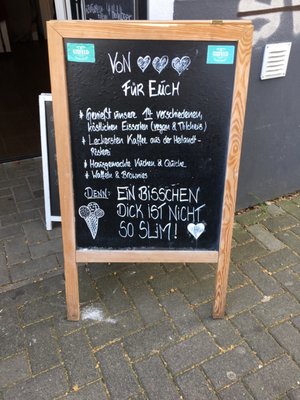 VON ♡♡♡
FÜR EUCH
* Genießt unsere 14 verschiedenen,
köstlichen Eissorten (vegan & Milcheis)
* Leckersten Kaffee aus der
Rösterei
* Hausgemachte Kuchen & Quiche
* Waffeln & Brownies
DENN: EIN BISSCHEN
DICK IST NICHT
SO SLIM!